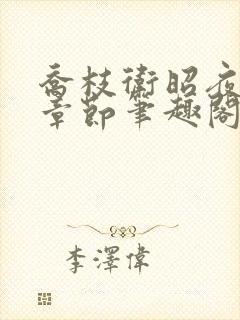 喬枝衛昭夜
章節筆趣閣
李澤偉